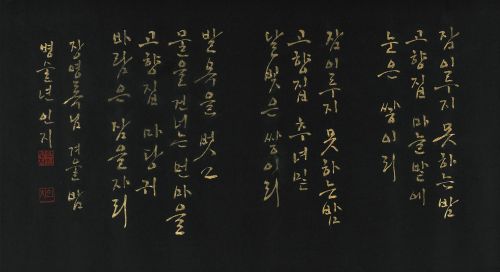 잠 이루지 못하는 밤
고향집 마늘밭에
눈은 쌓이리
잠 이루지 못하는 밤
고향집 추녀밑
달빛은 쌓이리
발목을 벗고
물을 건너는 먼 마을
고향집 마당귀
바람은 잠을 자리
겨울밤
병술년 인지